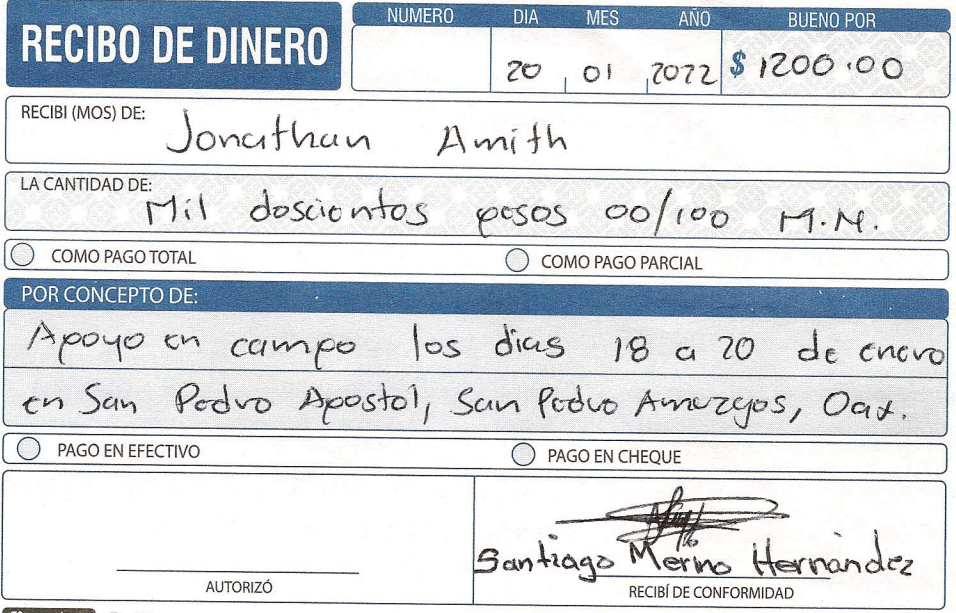 RECIBO DE DINERO
NUMERO DIA MES AÑO BUENO POR
20 01 2022 $ 1200.00
RECIBI (MOS) DE: Jonathan Amith
LA CANTIDAD DE: Mil doscientos pesos 00/100 M.N.
COMO PAGO TOTAL COMO PAGO PARCIAL
POR CONCEPTO DE:
Apoyo en campo los dias 18 a 20 de enero
en San Pedro Apostol, San Pedro Amuzgos, Oax.
PAGO EN EFECTIVO PAGO EN CHEQUE
Santiago Merino Hernández
AUTORIZÓ RECIBÍ DE CONFORMIDAD